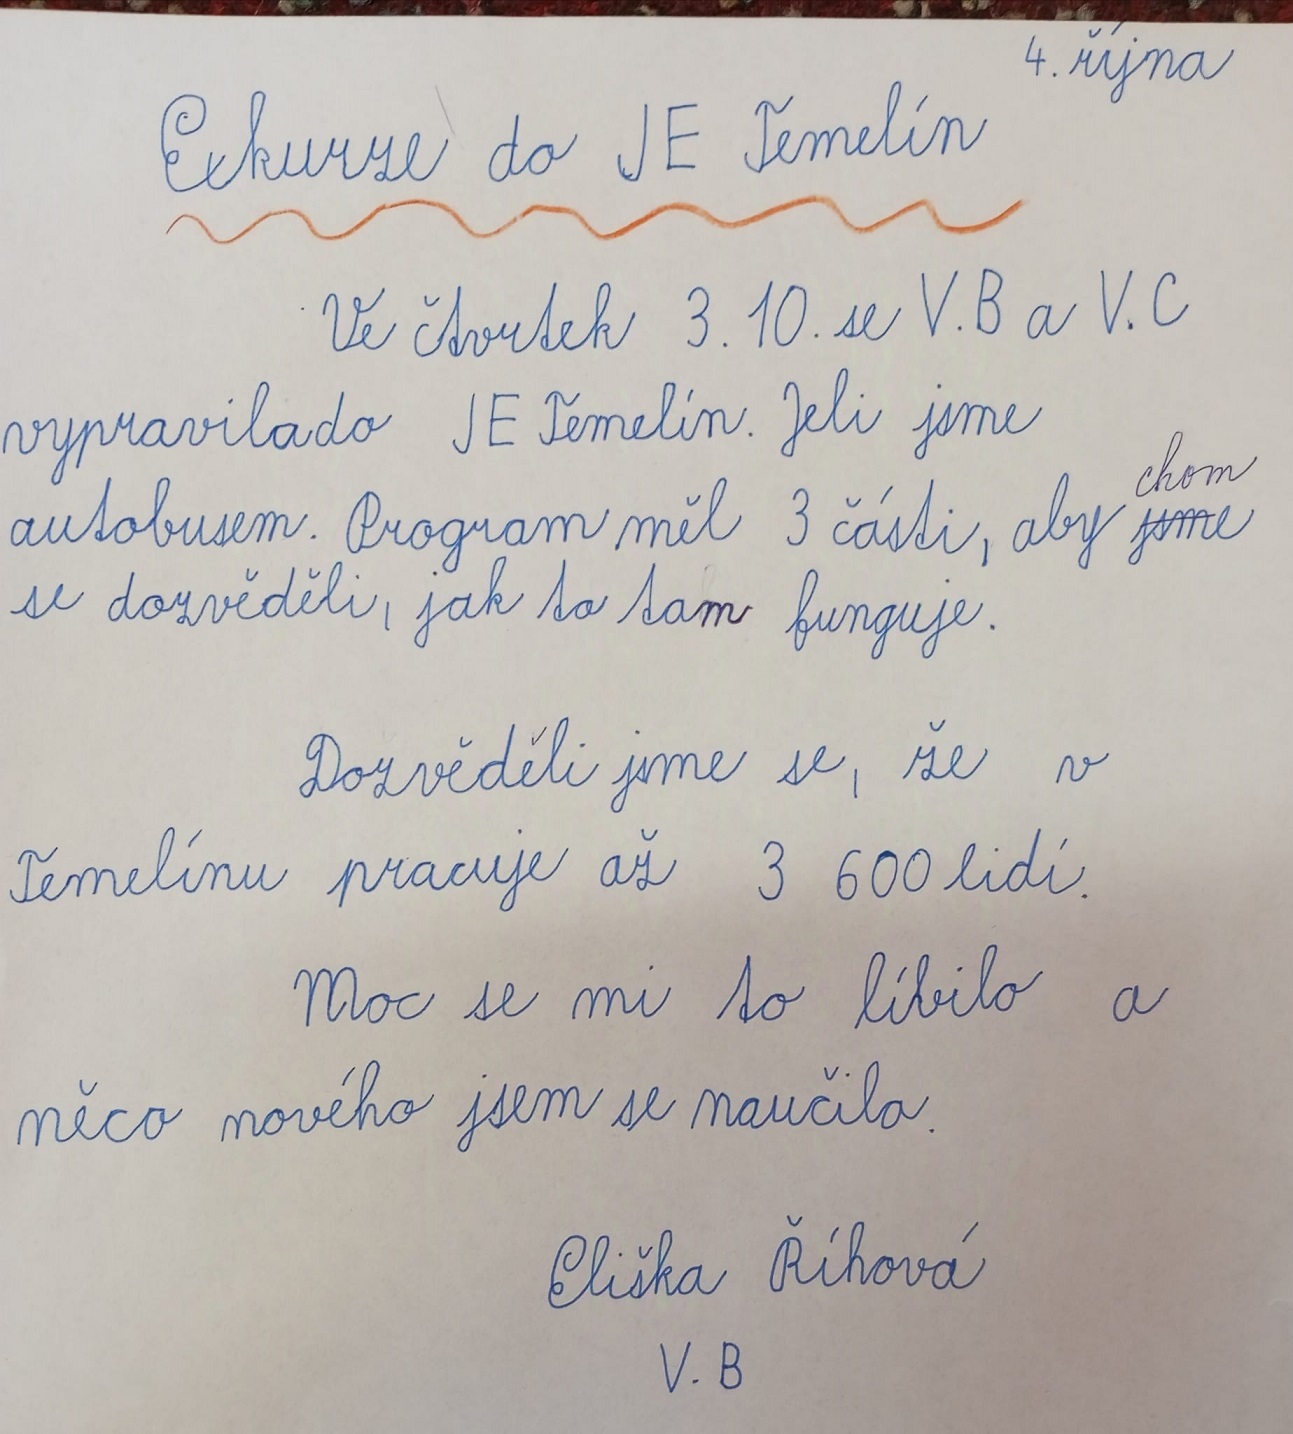 4. října
Exkurze do JE Temelín
Ve čtvrtek 3. 10. se V.B a V.C
vypravilado JE Temelín. Jeli jsme
chom
autobusem. Program měl 3 části, aby jsme
se dozvěděli, jak to tam funguje.
Dozvěděli jsme se, že v
Temelínu pracuje až 3 600 lidí.
Moc se mi to líbilo a
něco nového jsem se naučila.
Eliška Říhová
V. B